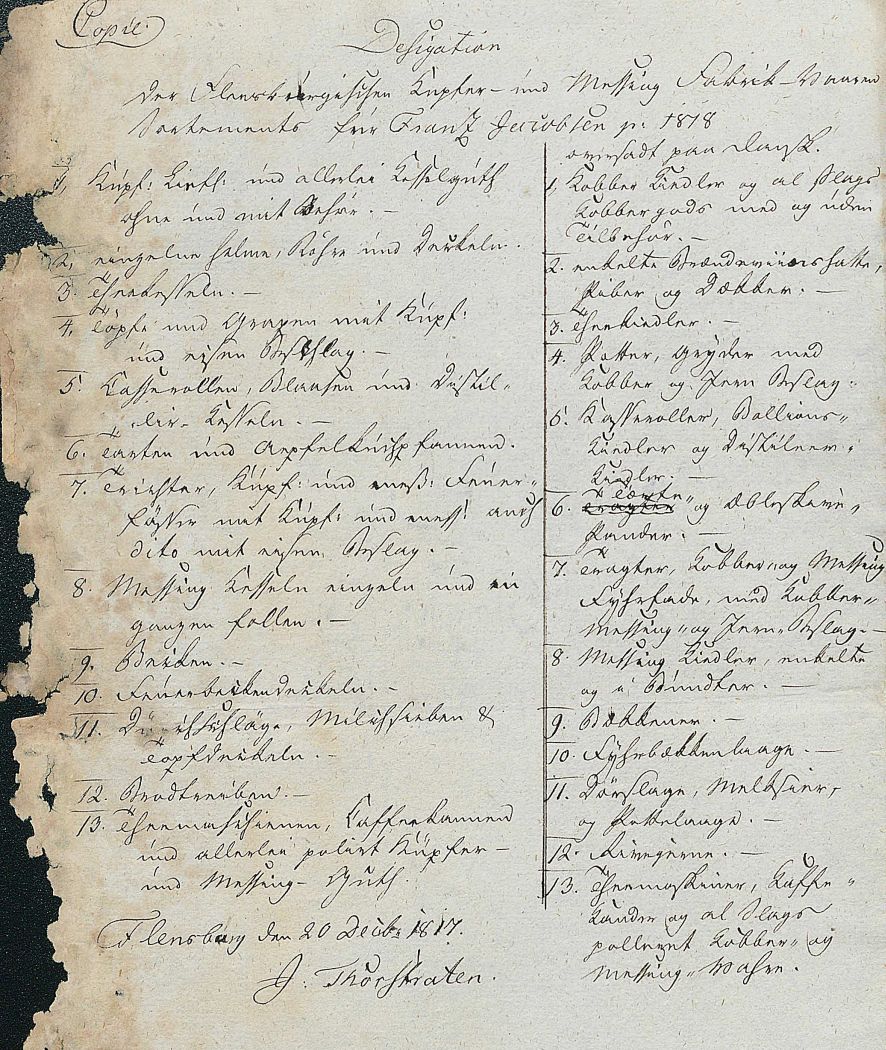 Copie.
Desigation
der Flensburgischen Kupfer- und Messing Fabrik-Waaren
Sortements für Frantz Jacobsen pr. 1818
1, Kupf: Kieth: und allerlei Kesselguth
ohne und mit Behör. -
2, einzelne Helme, Röhre und Deckeln.
3. Theekesseln. -
4, Töpfe und Grapen mit Kupf:
und eisen Beschlag. -
5. Casserollen, Blaasen und Distil-
lir-Kesseln. -
6. Tarten und Aepfelkuchpfannen.
7. Trichter, Kupf: und mess: Feuer-
fässer mit Kupf: und mess: auch
dito mit eisen Beslag. -
8. Messing Kesseln einzeln und in
ganzen follen. -
9. Becken. -
10. Feuerbeckendeckeln. -
11. Durchschläge, Milchsieben &
Topfdeckeln. -
12. Brodtreiben. -
13. Theemaschienen, Caffeekannen
und allerlei polirt Kupfer-
und Messing-Guth.
Flensburg den 20 Decbr 1817.
J. Thorstraten.
oversadt paa dansk.
1, Kobber Kiedler og al Slags
Kobbergods med og uden
Tilbehör. -
2. enkelte Brændeviinshatte,
Piber og Dækker. -
3. Theekiedler. -
4. Potter, Gryder med
Kobber og Jern Beslag-
5. Kasseroller, Bollions-
Kiedler og Distileer-
Kiedler. -
6. Tragter Tærte- og Æbleskive-
Pander. -
7. Tragter, Kobber- og Messing
Fyhrfade, med Kobber-
Messing- og Jern-Beslag. -
8. Messing Kiedler, enkelte
og i Bundter. -
9. Bækkener. -
10. Fyhrbækkenlaage. -
11. Dörslage, Melksier,
og Pottelaage. -
12. Rivejerne. -
13. Theemaskiner, Kaffe-
Kander og al Slags
polleret Kobber- og
Messing-Wahre.